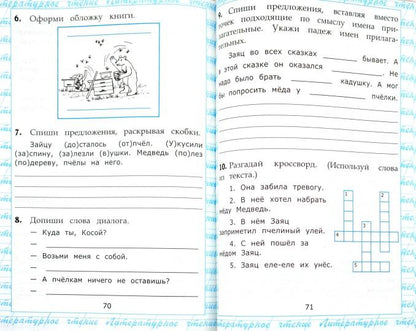 6. Оформи обложку книги.
7. Спиши предложения, раскрывая скобки.
Зайцу (до)сталось (от)пчёл. (У)кусили
(за)спину, (за)лезли (в)ушки. Медведь (по)лез
(по)дереву, пчёлы на него.
8. Допиши слова диалога.
— Куда ты, Косой?
—
— Возьми меня с собой.
—
— А пчёлкам ничего не оставишь?
—
70
литературное чтение
9. Спиши предложения, вставляя вместо
точек подходящие по смыслу имена прил-
агательные. Укажи падеж имен прилага-
тельных.
Заяц во всех сказках бывает. А
в этой сказке он оказался . Не
надо было брать кадушку. А мог
бы попросить мёда у пчёлки.
10. Разгадай кроссворд. (Используй слова
из текста.)
1. Она забила тревогу.
2. В неё хотел набрать
мёду Медведь.
3. В нём Заяц
заприметил пчелиный улей.
4. С ней пошёл за
мёдом Заяц.
5. Заяц еле-еле их унёс.
1
2
3
4
5
71
чтение литературное чтение